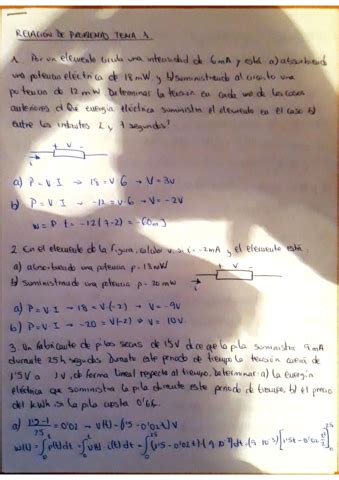 RELACIÓN DE PROBLEMAS TEMA 1.
1. Por un elemento circula una intensidad de 6mA y está a) absorbiendo
una potencia eléctrica de 18mW y b) suministrando al circuito una
potencia de 12mW. Determinar la tensión en cada uno de los casos
anteriores c) Qué energía eléctrica suministra el elemento en el caso b)
entre los instantes 2 y 7 segundos?
+ V -
a) P = V·I → 18 = V·6 → V = 3V
b) P = V·I → -12 = V·6 → V = -2V
W = P·t = -12(7-2) = -60mJ
2. En el elemento de la figura, calcular v, si i = -2mA y el elemento está:
a) absorbiendo una potencia p = 18mW
+ V -
b) suministrando una potencia p = 20mW
a) P = V·I → 18 = V·(-2) → V = -9V
b) P = V·I → -20 = V(-2) → V = 10V.
3. Un fabricante de pilas secas de 1'5V dice que la pila suministra 9mA
durante 25h seguidas. Durante este periodo de tiempo la tensión cae de
1'5V a 1V, de forma lineal respecto al tiempo. Determinar: a) la energía
eléctrica que suministra la pila durante este periodo de tiempo, b) el precio
del kWh si la pila cuesta 0'6€.
a) (1'5-1)/25 = 0'02 → V(t) = (1'5-0'02t)V